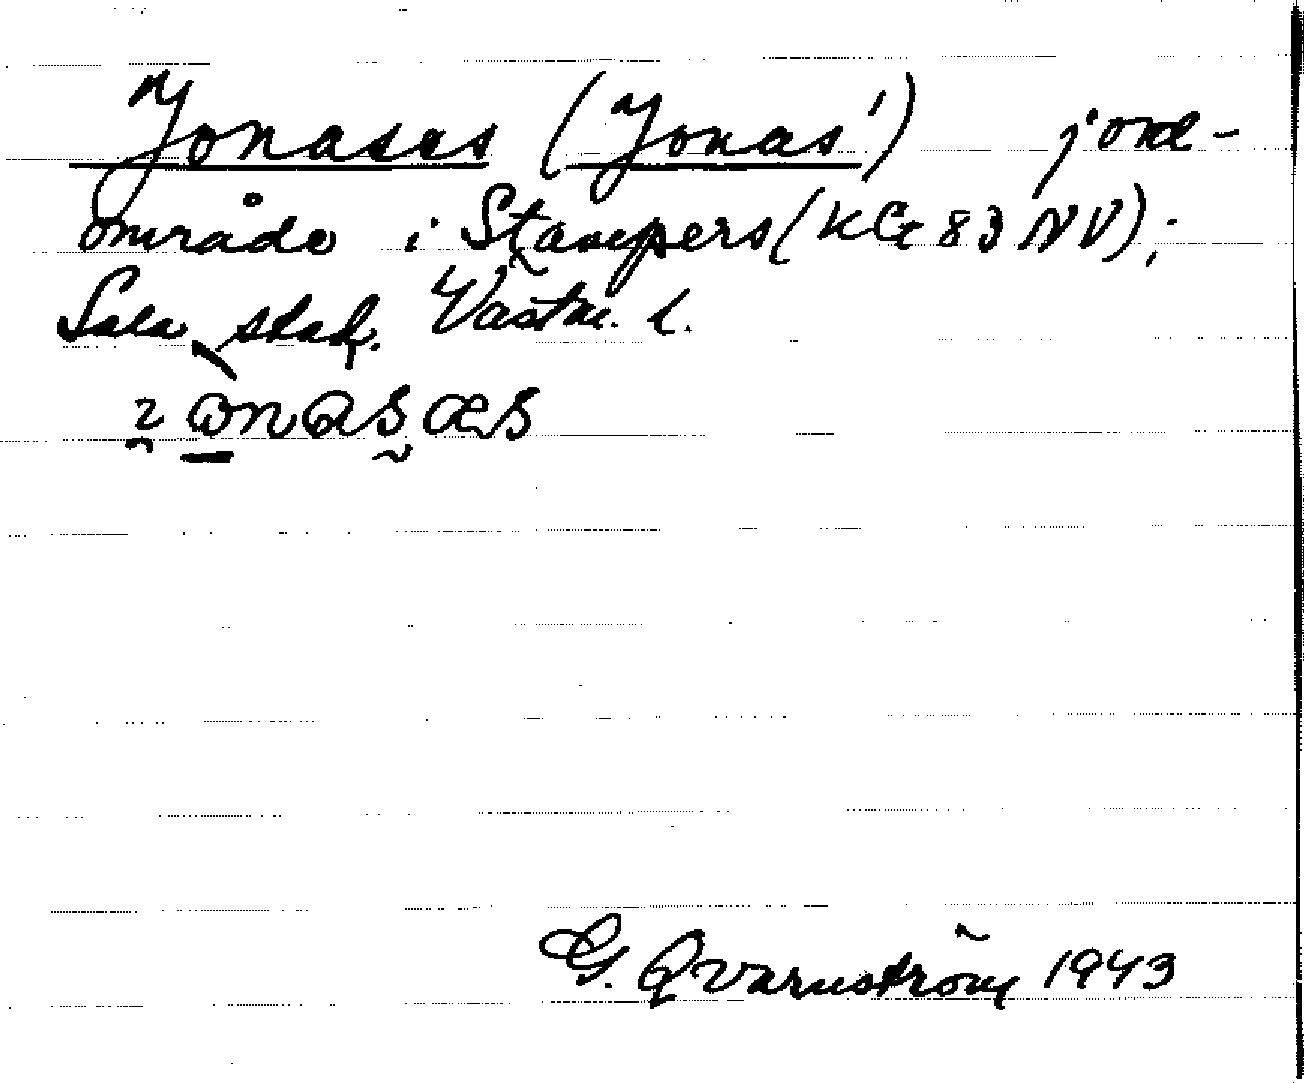 Jonases (Jonas') jord-
område i Stampers (KG 83 NV);
Sala stad. Västm. l.
G. Qvarnström 1943